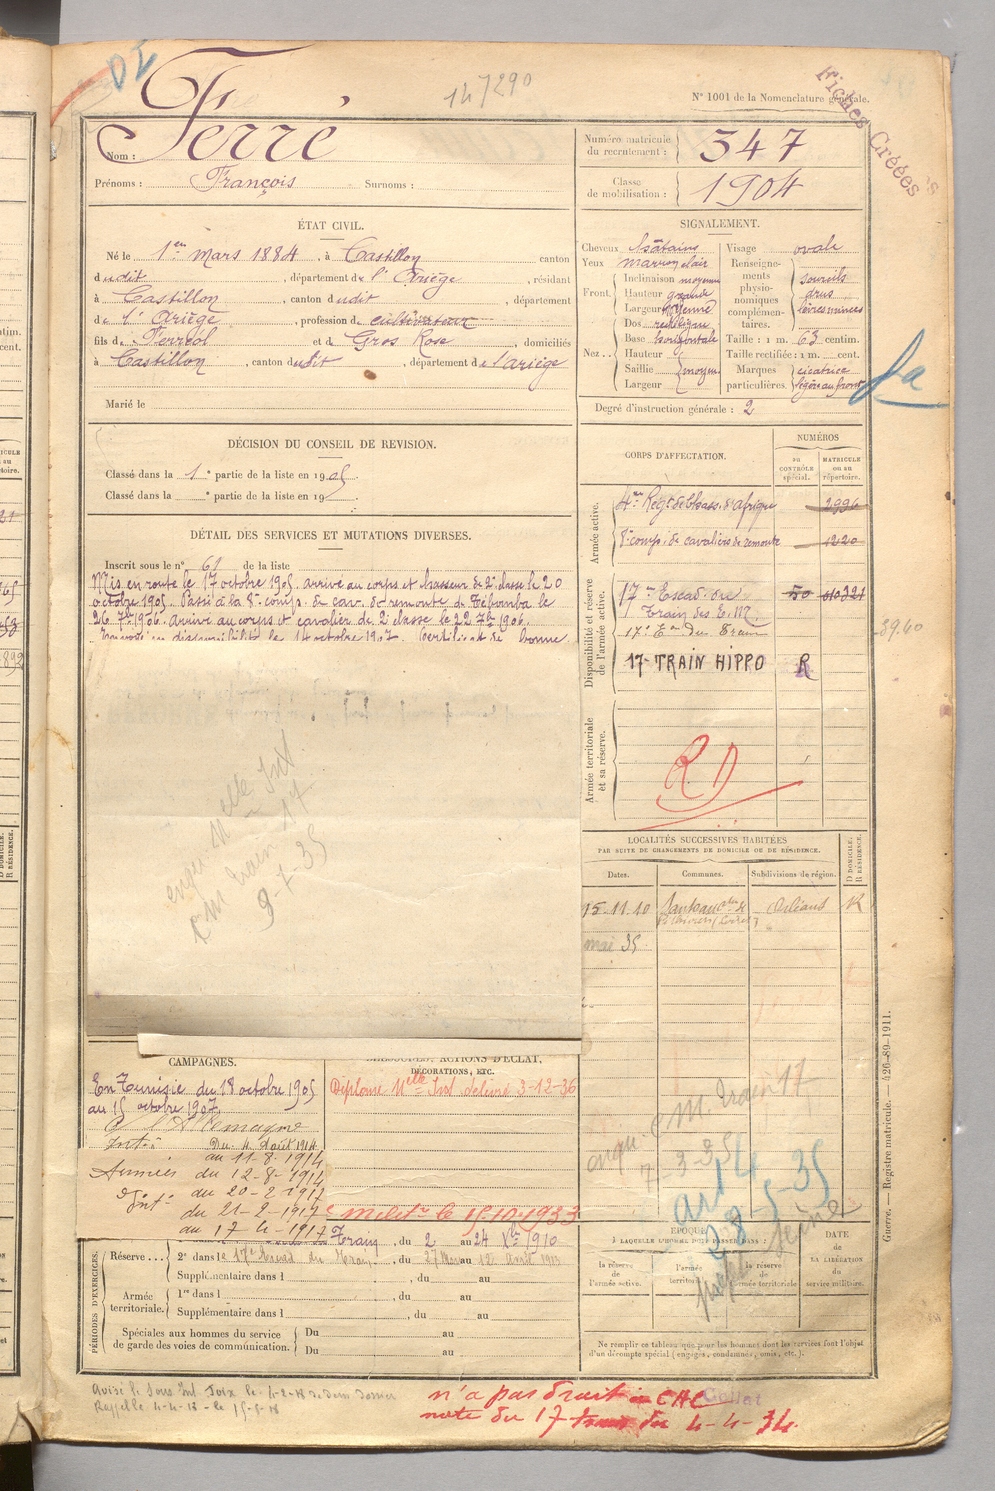 DI
147290
N° 1001 de la Nomenclature générale.
Fiches Créées
Ferré
Nom :
Prénoms : François Surnoms :
Numéro matricule du recrutement : 347
Classe de mobilisation : 1904
ÉTAT CIVIL.
Né le 1er Mars 1884, à Castillon canton
dudit, département de l'Ariège, résidant
à Castillon, canton dudit, département
de l'Ariège, profession de cultivateur
fils de Ferréol et de Gros Rose, domiciliés
à Castillon, canton dudit, département de l'ariège
Marié le
SIGNALEMENT.
Cheveux châtains
Yeux marron clair
Front. Inclinaison moyenne
Hauteur grande
Largeur moyenne
Nez... Dos rectiligne
Base horizontale
Hauteur
Saillie moyen
Largeur
Visage ovale
Renseignements physionomiques complémentaires. sourcils drus lèvres minces
Taille : 1 m. 63 centim.
Taille rectifiée : 1 m. cent.
Marques particulières. cicatrice légère au front
Degré d'instruction générale : 2
DÉCISION DU CONSEIL DE REVISION.
Classé dans la 1e partie de la liste en 1905
Classé dans la e partie de la liste en 19
DÉTAIL DES SERVICES ET MUTATIONS DIVERSES.
Inscrit sous le n° 61 de la liste
Mis en route le 17 octobre 1905. arrivé au corps et chasseur de 2e classe le 20
octobre 1905. Passé à la 8e comp. de cav. de remonte de Tébourba le
26 7bre 1906. arrivé au corps et cavalier de 2e classe le 22 7bre 1906.
en disponibilité le 14 octobre 1907. Certificat de bonne
CORPS D'AFFECTATION.
NUMÉROS
au CONTRÔLE spécial.
MATRICULE ou au répertoire.
Armée active.
4me Régt de Chass. d'Afrique 2996
8e comp. de cavaliers de remonte 1220
Disponibilité et réserve de l'armée active.
17me Escad. du 50 010321
Train des E. M.
17e Eon du Train
17e TRAIN HIPPO R
3960
Armée territoriale et sa réserve.
RD
LOCALITÉS SUCCESSIVES HABITÉES
PAR SUITE DE CHANGEMENTS DE DOMICILE OU DE RÉSIDENCE.
Dates. Communes. Subdivisions de région. D DOMICILE. R RÉSIDENCE.
15.11.10 Orléans R
mai 35
CM Train 17
9-7-35
CAMPAGNES.
En Tunisie du 18 octobre 1905
au 15 octobre 1907
C l'Allemagne
Intr. Du 4 août 1914
au 11-8-1914
Armées du 12-8-1914
au 20-2-1917
Intr. du 21-2-1917
au 17-4-1917
BLESSURES, ACTIONS D'ÉCLAT,
DÉCORATIONS, ETC.
Diplome Melle Ind délivré 3-12-36
le 15.10.1933
CM. Train 17
7-3-35
art 14
28-5-35
Seine
PÉRIODES D'EXERCICES.
Train, du 2 au 24 Xbre 1910
Réserve... 2e dans le 17e Escad du Train, du 27 Mars au 12 Avril 1913
Supplémentaire dans l , du au
Armée territoriale. 1re dans l , du au
Supplémentaire dans l , du au
Spéciales aux hommes du service de garde des voies de communication. Du au
Du au
ÉPOQUE
À LAQUELLE L'HOMME DOIT PASSER DANS :
la réserve de l'armée active.
l'armée territoriale
la réserve de l'armée territoriale
DATE de LA LIBÉRATION du service militaire.
Ne remplir ce tableau que pour les hommes dont les services font l'objet d'un décompte spécial (engagés, condamnés, omis, etc.).
Guerre. — Registre matricule. — 426-89-1911.
n'a pas droit à CAC
note du 17 du 4-4-34